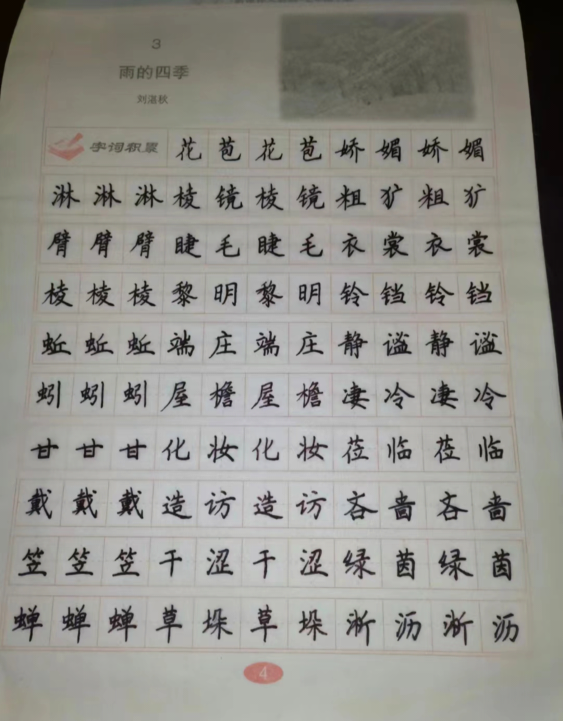 3
雨的四季
刘湛秋
字词积累 花苞花苞娇媚娇媚
淋淋淋棱镜棱镜粗犷粗犷
臂臂臂睫毛睫毛衣裳衣裳
棱棱棱黎明黎明铃铛铃铛
蚯蚯蚯端庄端庄静谧静谧
蚓蚓蚓屋檐屋檐凄冷凄冷
甘甘甘化妆化妆莅临莅临
戴戴戴造访造访吝啬吝啬
笠笠笠干涩干涩绿茵绿茵
蝉蝉蝉草垛草垛淅沥淅沥
4